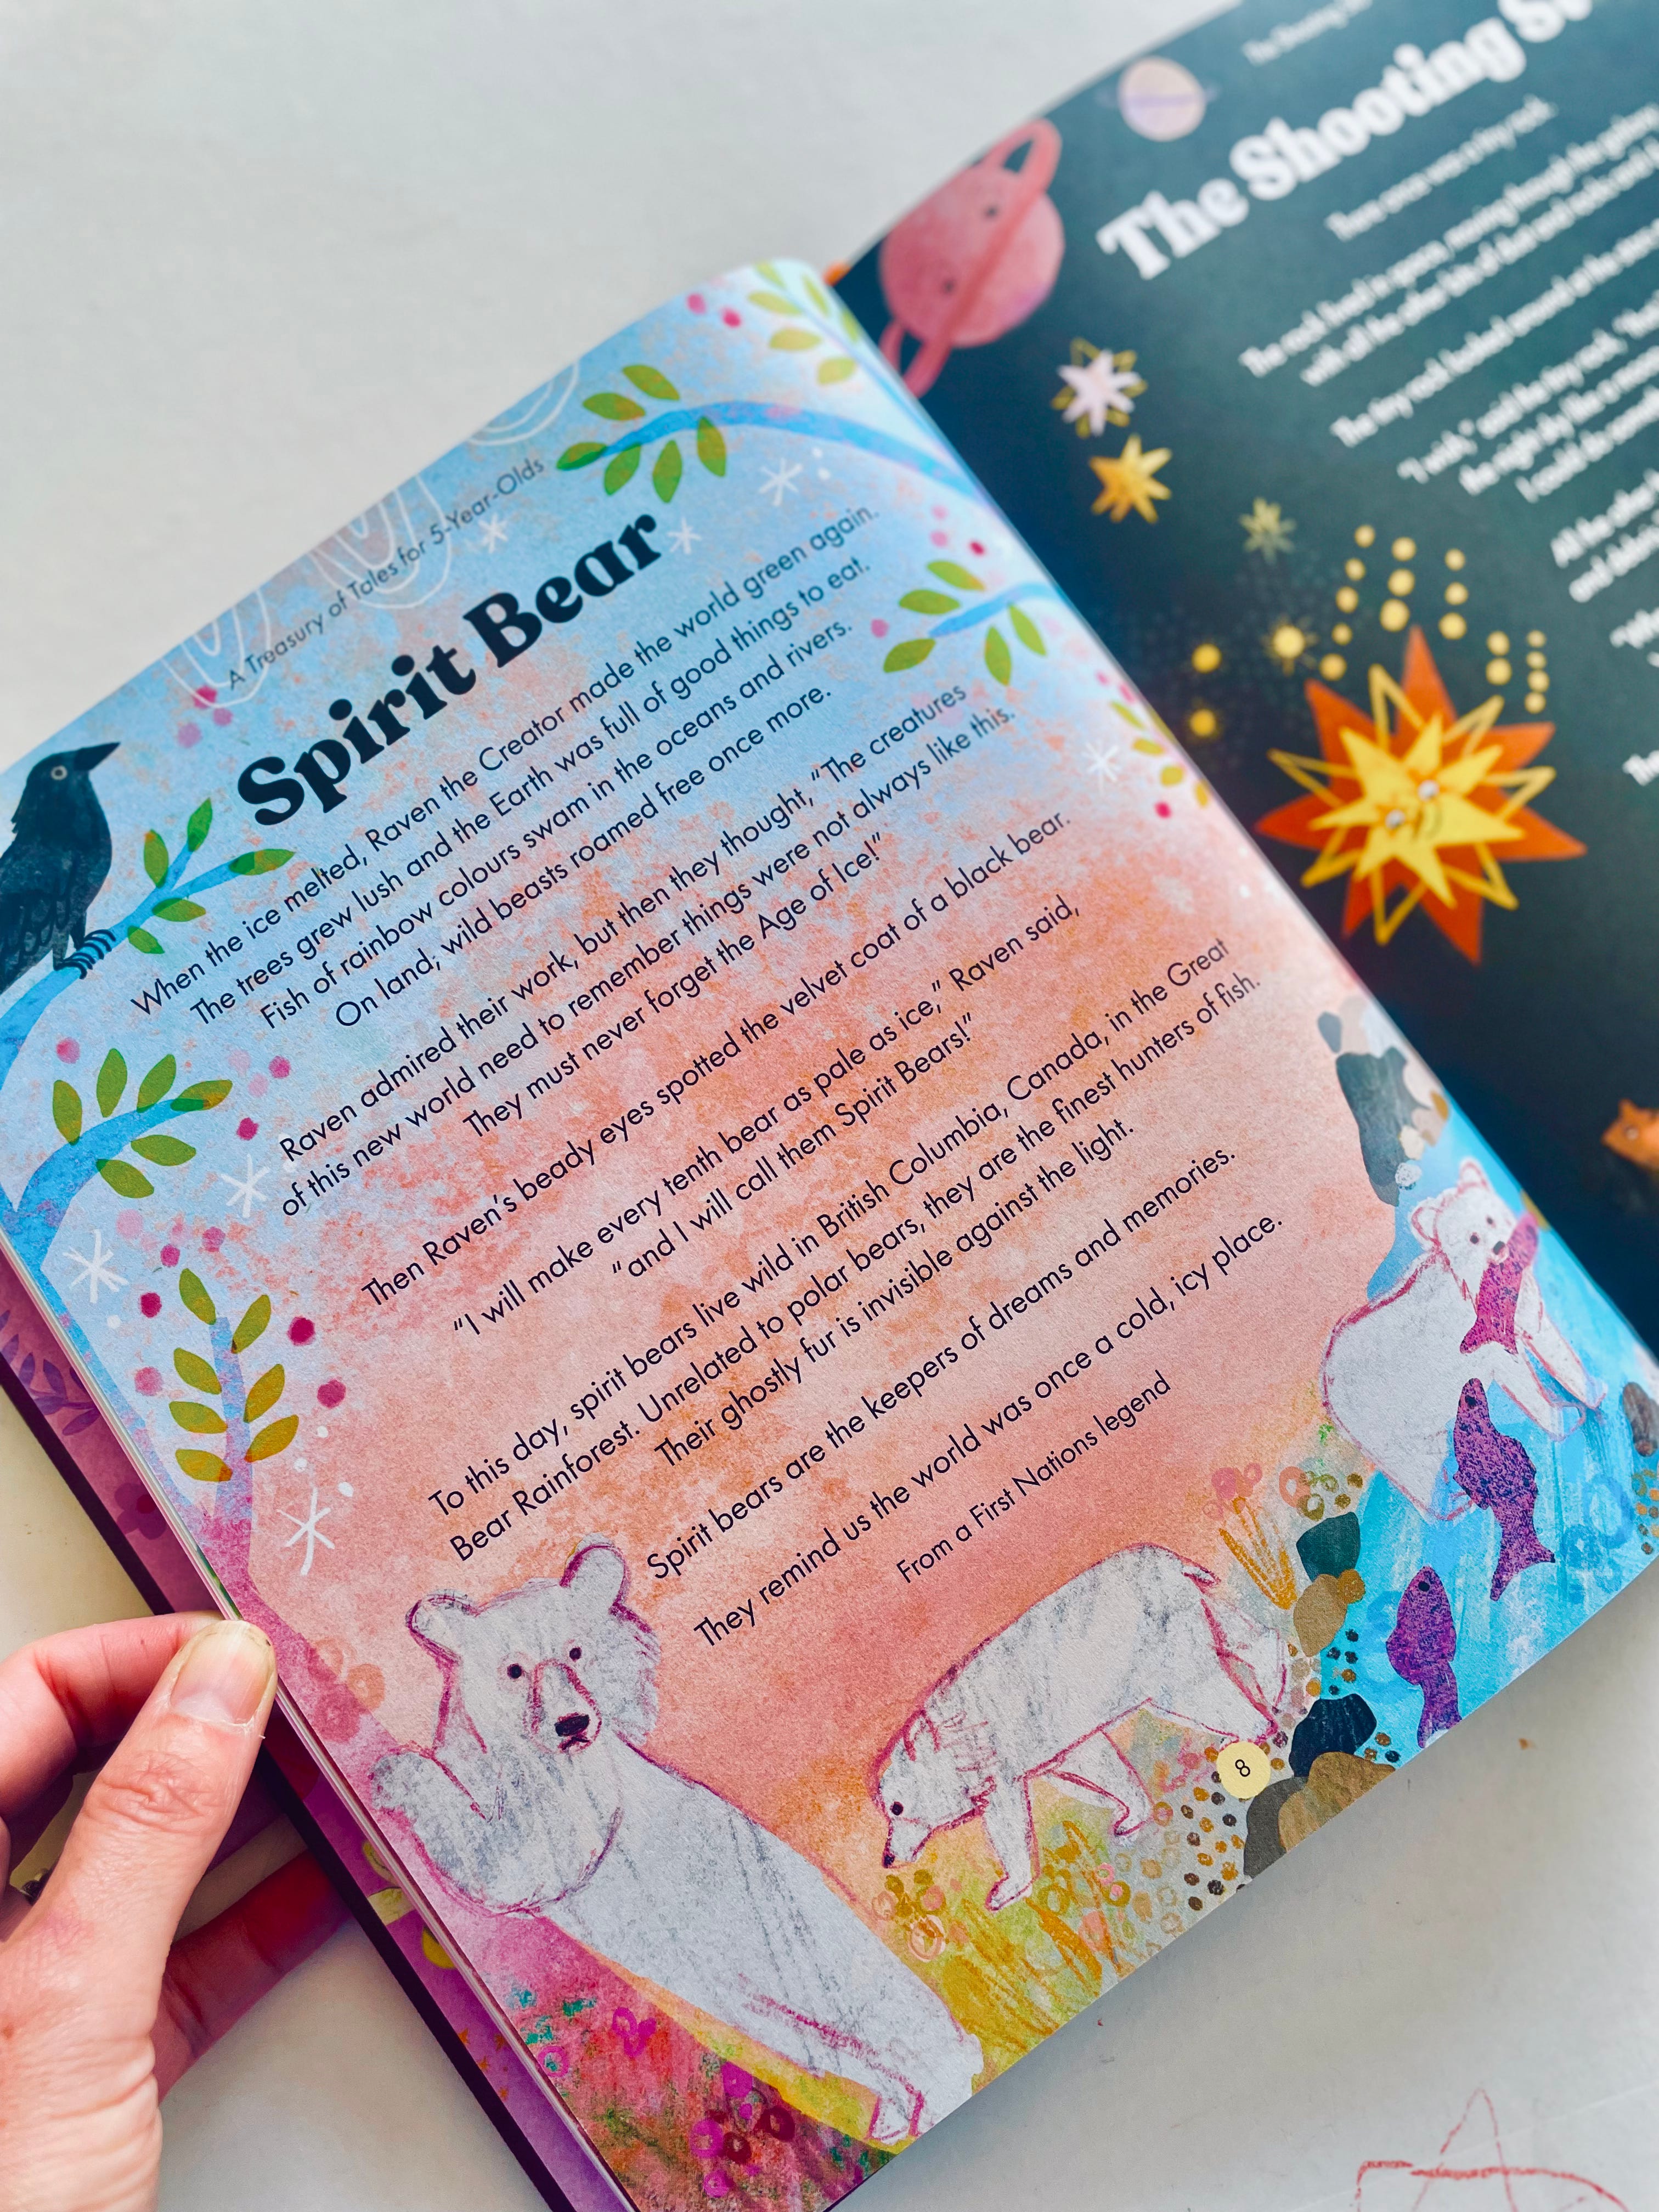 A Treasury of Tales for 5-Year-Olds
Spirit Bear
When the ice melted, Raven the Creator made the world green again.
The trees grew lush and the Earth was full of good things to eat.
Fish of rainbow colours swam in the oceans and rivers.
On land, wild beasts roamed free once more.
Raven admired their work, but then they thought, “The creatures
of this new world need to remember things were not always like this.
They must never forget the Age of Ice!”
Then Raven’s beady eyes spotted the velvet coat of a black bear.
“I will make every tenth bear as pale as ice,” Raven said,
“and I will call them Spirit Bears!”
To this day, spirit bears live wild in British Columbia, Canada, in the Great
Bear Rainforest. Unrelated to polar bears, they are the finest hunters of fish.
Their ghostly fur is invisible against the light.
Spirit bears are the keepers of dreams and memories.
They remind us the world was once a cold, icy place.
From a First Nations legend
8
The Shooting
The Shooting
There once was a tiny rock.
The rock lived in space, moving through the galaxy
with all the other bits of dust and rocks and
The tiny rock looked around at the stars
"I wish," said the tiny rock, "that
the night sky like a
I could do
All the other
and